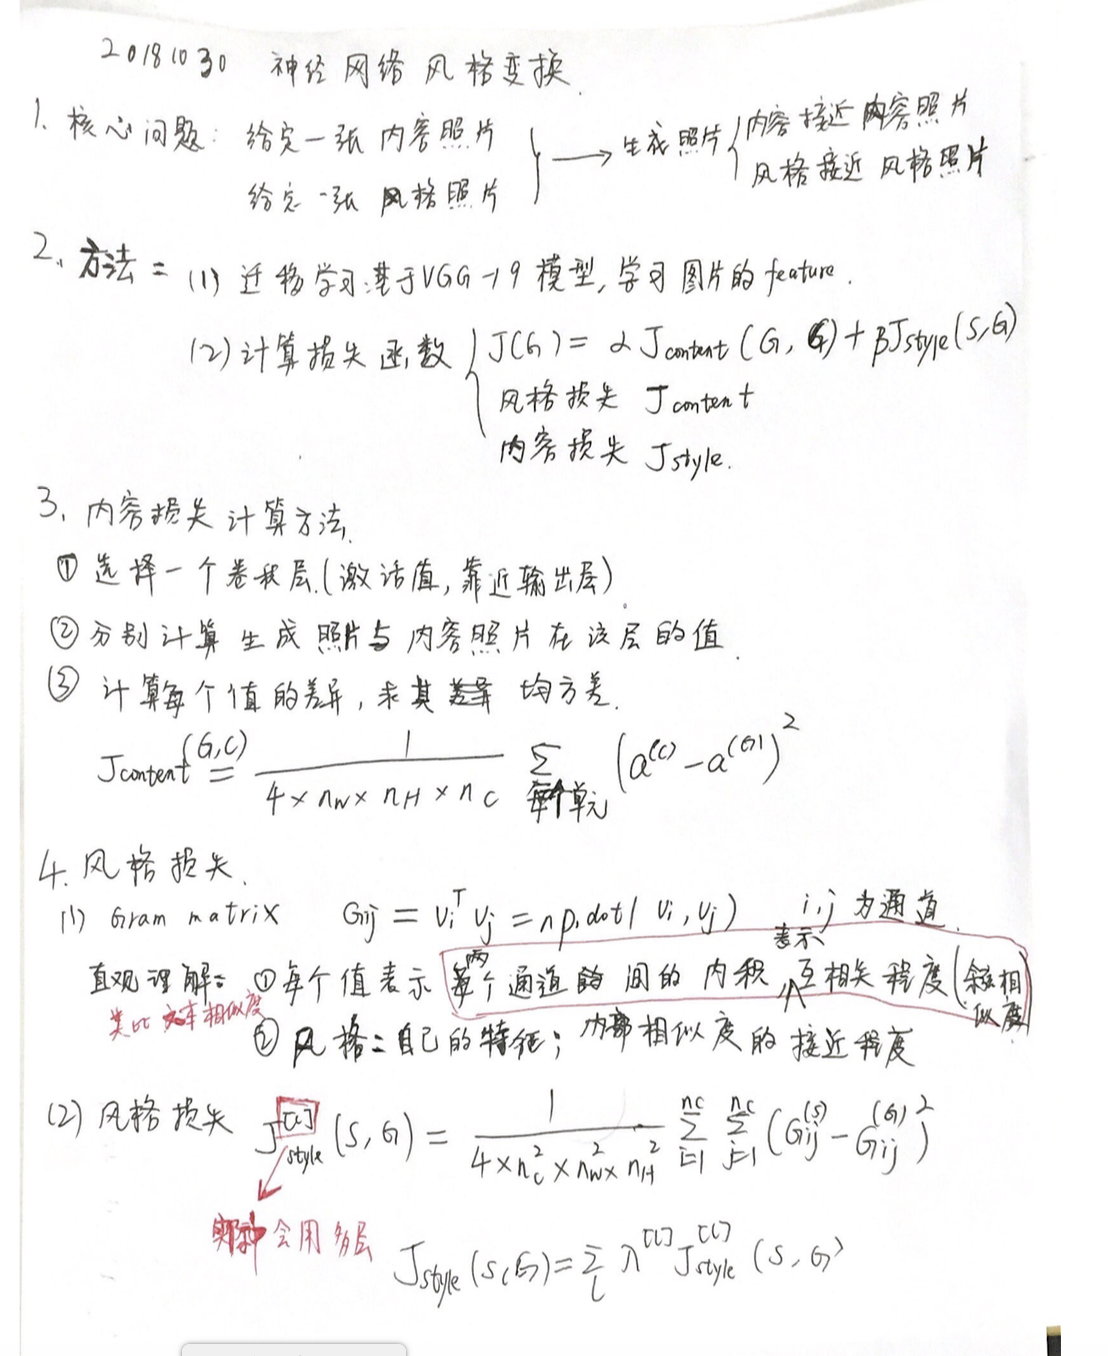 20181030 神经网络风格变换.
1. 核心问题: 给定一张内容照片
给定一张风格照片
→ 生成照片
内容接近内容照片
风格接近风格照片
2. 方法: (1) 迁移学习:基于VGG-19模型,学习图片的feature.
(2) 计算损失函数 J(G) = αJcontent(G, G) + βJstyle(S,G)
风格损失 Jcontent
内容损失 Jstyle.
3. 内容损失计算方法.
① 选择一个卷积层.(激活值,靠近输出层)
② 分别计算生成照片与内容照片在该层的值.
③ 计算每个值的差异,求其 均方差.
Jcontent(G,C) = 1 / (4×nW×nH×nC) Σ每个单元 (a^(C) - a^(G))^2
4. 风格损失.
(1) Gram matrix Gij = vi^T vj = np.dot(vi, vj) i,j为通道
直观理解: ①每个值表示每两个通道间的内积表示互相关程度(余弦相似度)
类比文本相似度
② 风格:自己的特征; 内部相似度的接近程度
(2) 风格损失 J^[l]style(S,G) = 1 / (4×nC^2×nW^2×nH^2) Σ(i=1→nC) Σ(j=1→nC) (Gij^(S) - Gij^(G))^2
会用多层
Jstyle(S,G) = Σl λ^[l] J^[l]style(S,G)